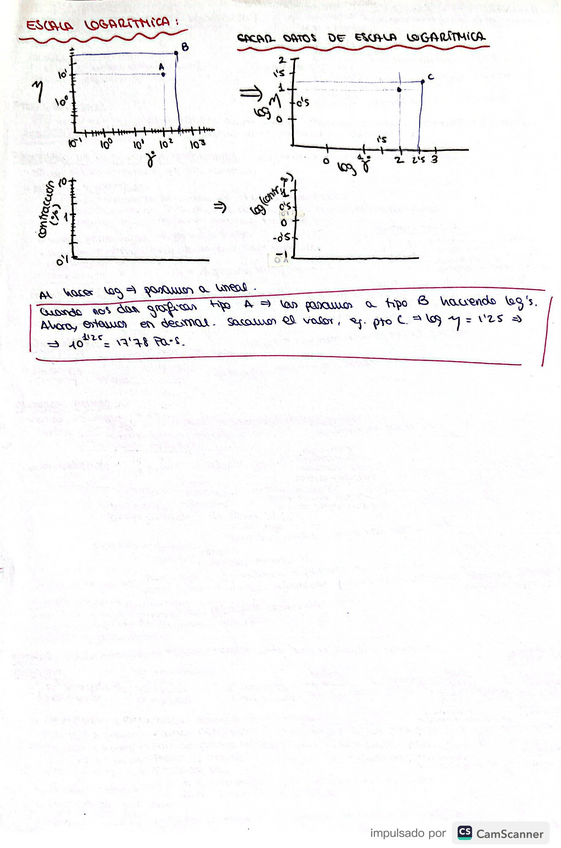 ESCALA LOGARÍTMICA:
SACAR DATOS DE ESCALA LOGARÍTMICA
η
10¹
10⁰
A
B
10⁻¹ 10⁰ 10¹ 10² 10³
γ°
⇒
log η
2
1'5
1
0'5
0
C
0 1 1'5 2 2'5 3
log γ°
contracción
(%)
10
1
0'1
⇒
1
0'5
0
-0'5
-1
Al hacer log ⇒ pasamos a lineal.
Cuando nos dan gráficas tipo A ⇒ las pasamos a tipo B haciendo log's.
Ahora, estamos en decimal. Sacamos el valor, ej. pto C ⇒ log η = 1'25 ⇒
⇒ 10^1'25 = 17'78 Pa·s.
impulsado por CS CamScanner